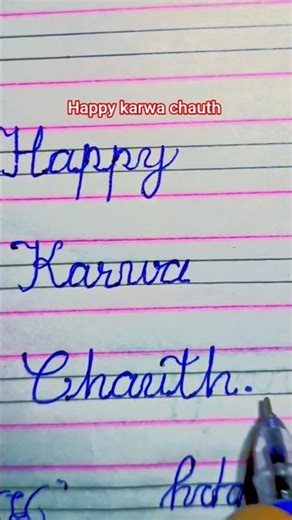 Happy karwa chauth
Happy
Karwa
Chauth.